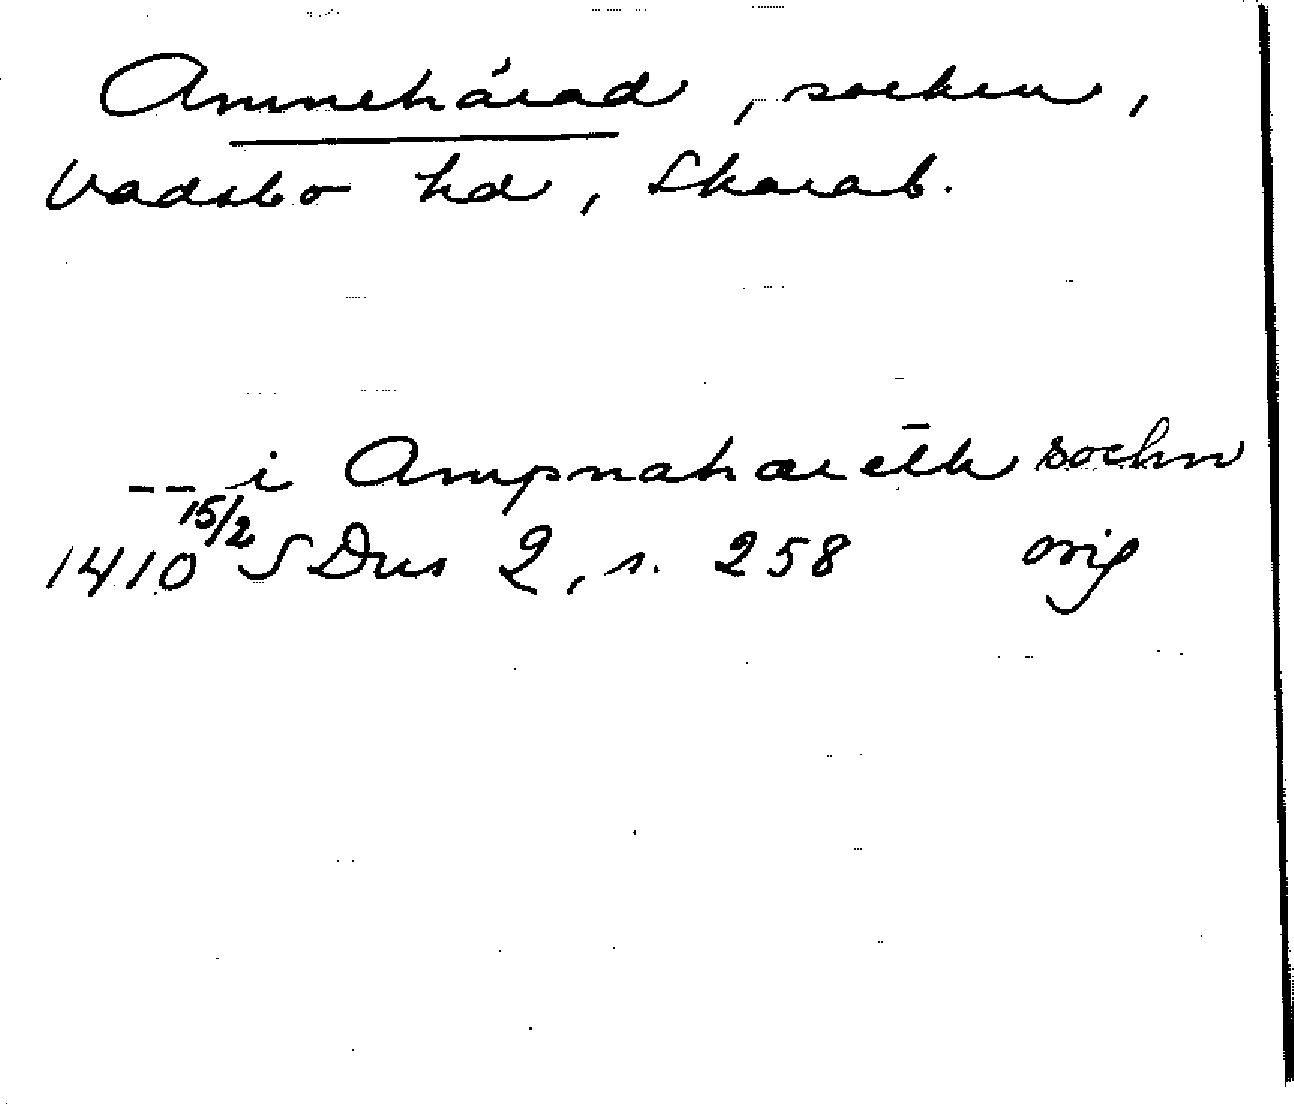 Amnehärad, socken,
Vadsbo hd, Skarab.
-- i Ampnahærēth sochn
1410 15/2 SDns 2, s. 258 orig